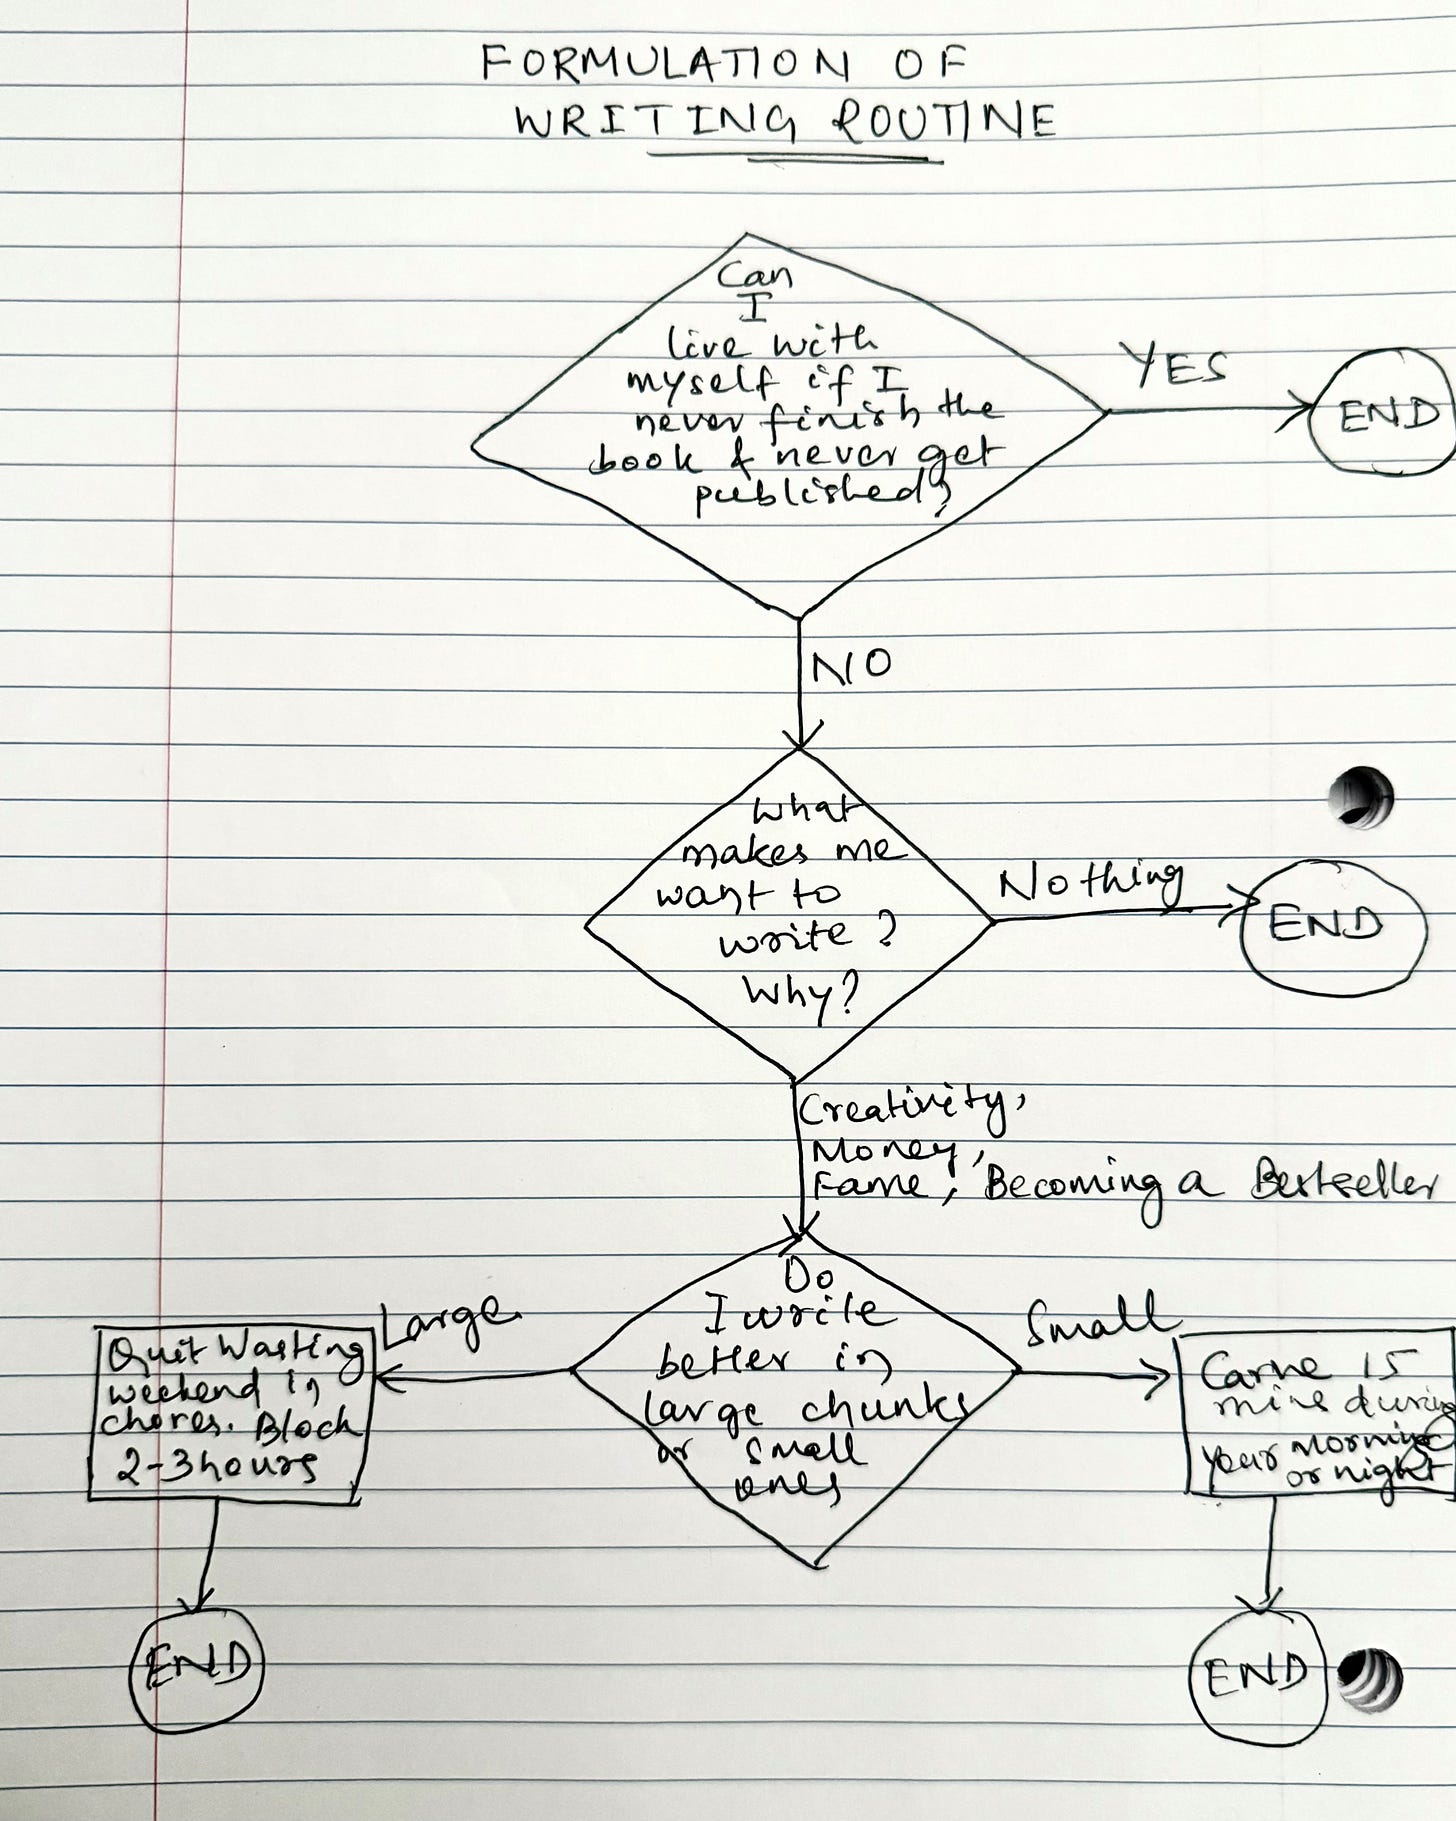 FORMULATION OF
WRITING ROUTINE
Can
I
live with
myself if I
never finish the
book & never get
published?
YES
END
NO
What
makes me
want to
write?
Why?
Nothing
END
Creativity,
Money,
Fame, Becoming a Bestseller
Do
I write
better in
large chunks
or small
ones
Large
Quit Wasting
weekend in
chores. Block
2-3 hours
END
Small
Carve 15
mins during
your morning
or night
END